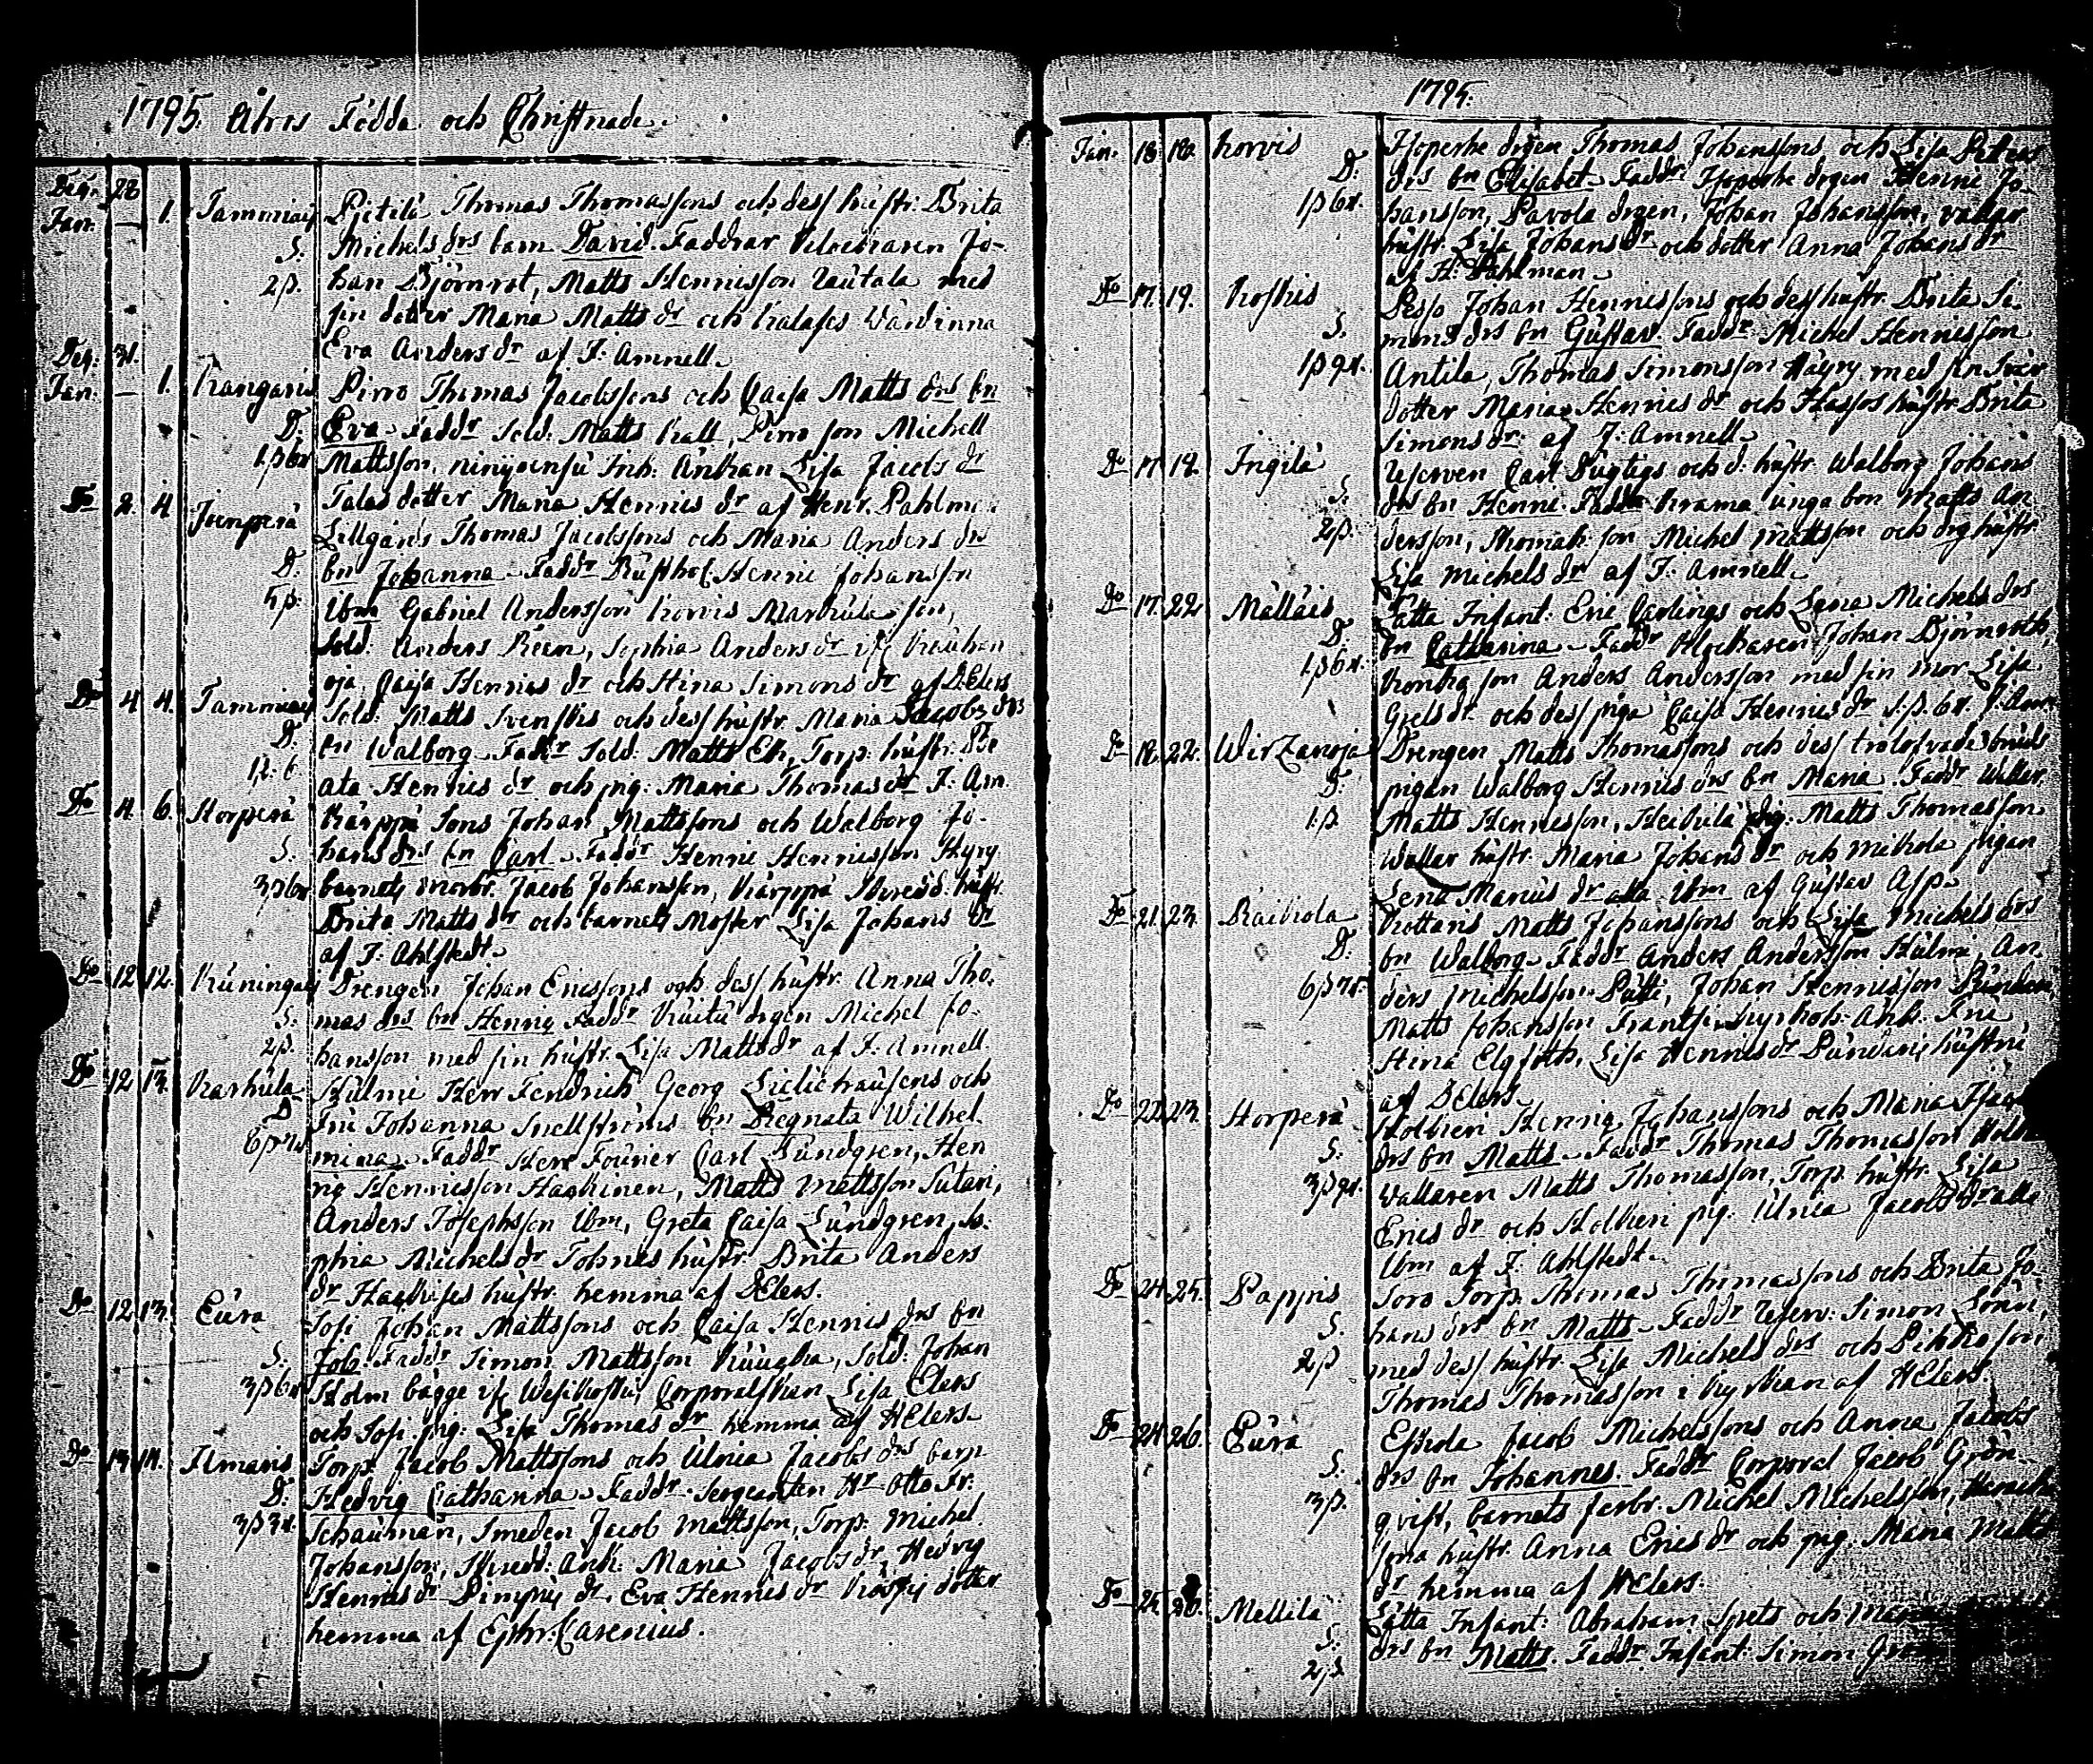 1795. Åhrs Födda och Christnade.
Dec. 28
Jan. — 1. Tammiais Pietilä Thomas Thomassons och dess hustr. Brita
S. Michels drs barn David. Faddrar Klockaren Jo-
2 p. han Björnrot, Matts Hennisson Rautala med
sin dotter Maria Matts dr och Kalases Wärdinna
Eva Anders dr af J. Amnell.
Dec. 31.
Jan. — 1. Kangaris Pirro Thomas Jacobssons och Caisa Matts drs bn
D. Eva. Faddr Sold. Matts Kall, Pirro son Michell
1 p 6 r Mattsson, Inh. Änkan Lisa Jacobs dr
Talas dotter Maria Hennis dr af Henr. Pahlm:
Do 2. 4 Junperä Lillgårds Thomas Jacobssons och Maria Anders drs
D. bn Johanna. Faddr Rusthol. Henric Johansson
5 p. Ibm Gabriel Andersson Korvis Markula son,
Sold. Anders Reen, Sophia Anders dr
oja, Caisa Hennis dr och Stina Simons dr af D. Elers
Do 4 4. Tammiais Sold. Matts Svenskis och dess hustr. Maria Jacobs drs
D. bn Walborg. Faddr Sold. Matts Ek, Torp. hustr. Be
ata Hennis dr och pig. Maria Thomas dr J. Am.
Do 4. 6. Horperä Kärppä Sons Johan Mattssons och Walborg Jo-
S. hans drs bn Carl. Faddr Henric Hennisson Hyry
3 p 6 r barnets morbr. Jacob Johansson, Kärppä hustr.
Brita Matts dr och barnets Moster Lisa Johans dr
af J. Ahlstedt.
Do 12 12. Kuningais Drengen Johan Ericssons och dess hustr. Anna Tho-
S. mas drs bn Henric Faddr drgen Michel Jo-
2 p. hansson med sin hustr. Lisa Matts dr af J. Amnell
Do 12 13. Karhula Hulmi Herr Fendrich Georg och
D. Fru Johanna Snellströms bn Regnata Wilhel
6 p mina. Faddr Herr Fourier Carl Lundgren, Hen
ric Hennisson Haakinen, Matts Mattsson Sutari,
Anders Josephsson Ibm, Greta Caisa Lundgren, So-
phia Michels dr hustr. Brita Anders
dr Haakises hustr. hemma af D Elers.
Do 12 13. Eura Sofi Johan Mattssons och Caisa Hennis drs bn
S. Job. Faddr Simon Mattsson, Sold. Johan
3 p 6 r Holm Corporalskan Lisa Elers
och Sofi pig. Lisa Thomas dr hemma af H Elers.
Do 13. 14. Ilmaris Torp. Jacob Mattssons och Ulrica Jacobs drs barn
D. Hedvig Catharina. Faddr Sergeanten Hr Otto Fr.
3 p 3 r. Schauman, Smeden Jacob Mattsson, Torp. Michel
Johansson, Skredd. Änk. Maria Jacobs dr, Hedvig
Hennis dr dr Eva Hennis dr dotter
hemma af Ephr. Carenius.
1795.
Jan. 18 18. Korvis drgen Thomas Johanssons och Lisa Petters
D. drs bn Elisabet. Faddr drgen Henric Jo-
1 p 6 r. hansson, Pavola drgen, Johan Johansson, vallar
hustr. Lisa Johans dr och dotter Anna Johans dr
af H. Pahlman.
Do 17. 19. Koskis Pesso Johan Hennissons och dess hustr. Brita Si-
S. mons drs bn Gustav. Faddr Michel Hennisson
1 p 9 r. Antila, Thomas Simonsson Häyry med sin Svär
dotter Maria Hennis dr och hustr. Brita
Simons dr. af J. Amnell.
Do 17. 18. Ingilä Reserven Carl Dugtigs och d. hustr. Walborg Johans
S. drs bn Henric. Faddr Krama unga bon Matts An
2 p. dersson, son Michel Mattsson och drg hustr.
Lisa Michels dr af J. Amnell.
Do 17. 22. Mälläis Lätta Infant. Eric Carlings och Lena Michels drs
D. bn Catharina. Faddr Klockaren Johan Björnroth,
1 p 6 r. Kontra son Anders Andersson med sin mor Lisa
Grels dr och dess piga Caisa Hennis dr 1 p. 6 r. J. Amn
Do 18. 22. Wirzanoja Drengen Matts Thomassons och dess trolofvade bruds
D. pigan Walborg Hennis drs bn Maria. Faddr Wallar
1 p. Matts Hennisson, Heikilä drg. Matts Thomasson
Wallar hustr. Maria Johans dr och Mikola pigan
Lena Marius dr alla Ibm af Gustav Asp.
Do 21. 23. Raikola Kottaris Matts Johanssons och Lisa Michels drs
D. bn Walborg. Faddr Anders Andersson Hulmi, An-
6 p ders Michelsson Pätti, Johan Hennisson Punden
Matts Johansson Frantsi, Kyrkoh. Änk. Fru
Stina Elgfoth, Lisa Hennis dr hustru
af D Elers.
Do 22. 23. Horperä Henric Johanssons och Maria Isacs
S. drs bn Matts. Faddr Thomas Thomasson
3 p 9 r. Wallaren Matts Thomasson, Torp. hustr. Lisa
Erics dr och pig. Ulrica Jacobs dr alla
Ibm af J. Ahlstedt.
Do 24. 25. Pappis Soro Torp. Thomas Thomassons och Brita Jo-
S. hans drs bn Matts. Faddr Reserv. Simon Lönn,
2 p med dess hustr. Lisa Michels drs och son
Thomas Thomasson i af H Elers.
Do 24. 26. Eura Eskola Jacob Michelssons och Anna Jacobs
S. drs bn Johannes. Faddr Corporal Jacob Grön-
3 p. qvist, barnets farbr. Michel Michelsson,
hustr. Anna Erics dr och pig. Maria Matts
dr hemma af H Elers.
Do 25. 26. Mellilä Lätta Infant: Abraham Spets och Maria
S. drs bn Matts. Faddr Infant Simon
2 p